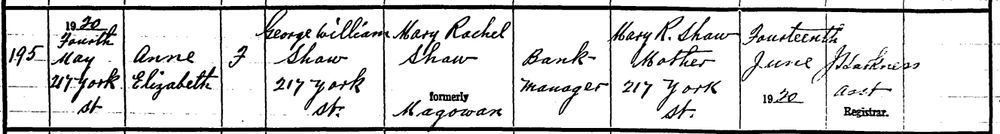 195
1920
Fourth
May
217 York
St
Anne
Elizabeth
F
George William
Shaw
217 York
St.
Mary Rachel
Shaw
formerly
Magowan
Bank
Manager
Mary R. Shaw
Mother
217 York
St.
Fourteenth
June
1920
Harkness
Asst
Registrar.